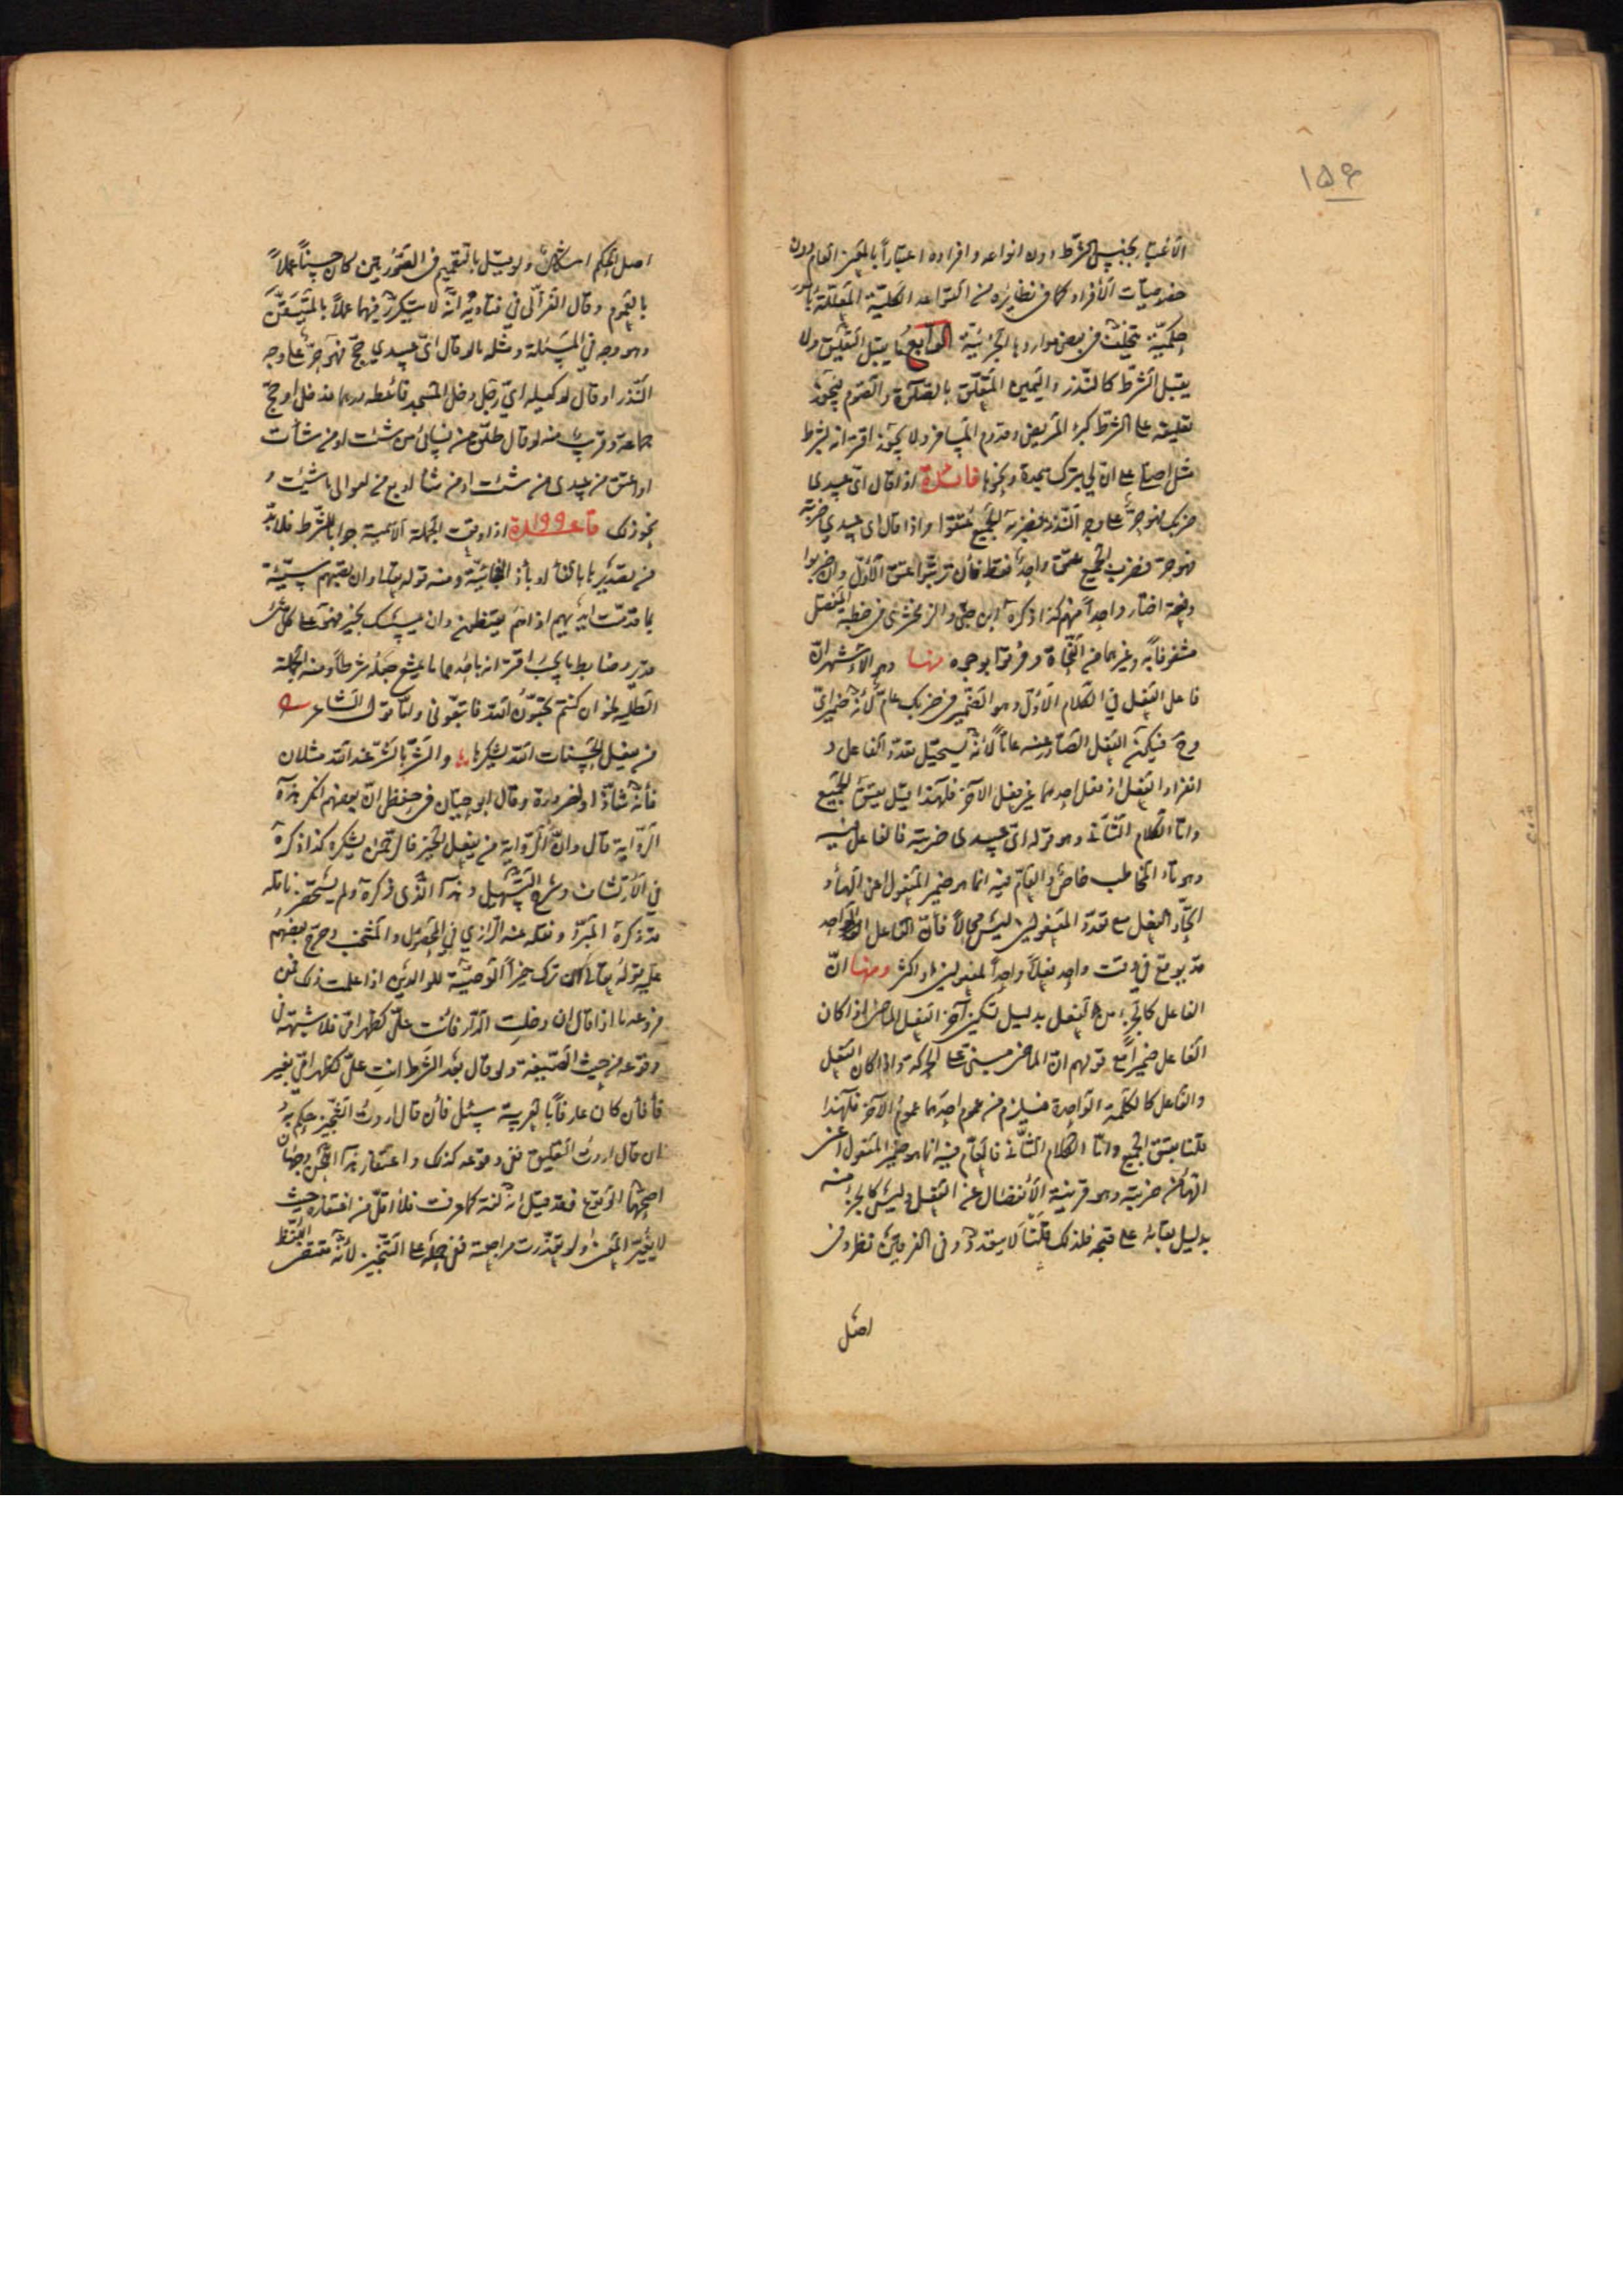 ١٥٤
الأعتبار بجنس الشرط دون انواعه وافراده اعتباراً بالمعنى العام دون
خصوصيات الأفراد كما فى نظايره من القواعد الكلية المعللة بأمور
حكمية تتخلف فى بعض مواردها الجزئية الرابع ما يقبل التعليق ولا
يقبل الشرط كالنذر واليمين المتعلق بالصلوة والصوم فيجوز
تعليقه على الشرط كبرء المريض وقدوم المسافر ولا يجوز اقترانه بشرط
مثل اصلى على ان لى ترك سجدة ونحوها فائدة اذا قال اى عبيدى
ضربك فهو حر على وجه النذر فضربه الجميع عتقوا واذا قال اى عبيدى ضربته
فهو حر فضرب الجميع عتق واحد فقط فأن ترتبوا عتق الأول وان ضربوا
دفعة اختار واحداً منهم كذا ذكره ابن جنى والزمخشرى فى خطبة المفصل
مشغوفاً به وغيرهما من النحاة وفرقوا بوجوه منها وهو الأشهر ان
فاعل الفعل في الكلام الأول وهو الضمير فى ضربك عام لأنه ضمير اى
وح فيكون الفعل الصادر عنه عاماً لأنه يستحيل تعدد الفاعل و
انفراد الفعل اذ فعل احدهما غير فعل الآخر فلهذا قيل بعتق الجميع
واما الكلام الثانى وهو قوله اى عبيدى ضربته فالفاعل فيه
وهو تاء المخاطب خاص والعام فيه انما هو ضمير المفعول اعنى الهاء و
اتحاد الفعل مع تعدد المفعولين ليس محالاً فأن الفاعل الواحد
قد يوقع في وقت واحد فعلاً واحداً لمفعولين او اكثر ومنها ان
الفاعل كالجزء من الفعل بدليل تسكين آخر الفعل الماضى اذا كان
الفاعل ضميراً مع قولهم ان الماضى مبنى على الحركة واذا كان الفعل
والفاعل كالكلمة الواحدة فيلزم من عموم احدهما عموم الآخر فلهذا
قلنا بعتق الجميع واما الكلام الثانى فالعام فيه انما هو ضمير المفعول اعنى
الهاء من ضربته وهو قرينة الأنفصال عن الفعل وليس كالجزء منه
بدليل بقائه على فتحه فلذلك قلنا لا يتعدد وفى الفرقين نظر وفى
اصل
اصل الحكم اشكال ولو قيل بالتعميم فى الصورتين كان حسناً عملاً
بالعموم وقال الغزالى في فتاويه انه لا يتكرر فيهما عملاً بالمتيقن
وهو وجه في المسئلة ومثله ما لو قال اى عبيدي حج فهو حر على وجه
النذر او قال لوكيله اي رجل دخل المسجد فأعطه درهما فدخل او حج
جماعة وقريب منه لو قال طلق من نسائى من شئت او من شائت
او اعتق من عبيدى من شئت او من شاء او بع من اموالى ما شئت و
نحو ذلك قاعدة ١٩٩ اذا وقعت الجملة الأسمية جوابا للشرط فلا بد
من تصديرها بالفاء او بأذا الفجائية ومنه قوله تعالى وان تصبهم سيئة
بما قدمت ايديهم اذا هم يقنطون وان يمسسك بخير فهو على كل شئ
قدير وضابط ما يجب اقترانه بأحدهما ما يمتنع جعله شرطاً ومنه الجملة
الطلبية نحو ان كنتم تحبون الله فاتبعونى واما قول الشاعر
من يفعل الحسنات الله يشكرها والشر بالشر عند الله مثلان
فأنه شاذ او لضرورة وقال ابو حيان فى حفظى ان بعضهم انكر هذه
الرواية قال وان الرواية من يفعل الخير فالرحمن يشكره كذا ذكره
في الأرتشاف وشرح التسهيل وهذا الذى ذكره ولم يستحضر ناقله
قد ذكره المبرد ونقله عنه الرازي في المحصول والمنتخب وخرج بعضهم
عليه قوله تعالى ان ترك خيراً الوصية للوالدين اذا علمت ذلك فمن
فروعه ما اذا قال ان دخلت الدار فأنت على كظهر امى فلا شبهة فى
وقوعه من حيث الصيغة ولو قال بعد الشرط انت على كظهر امى بغير
فأ فأن كان عارفاً بالعربية سئل فأن قال اردت التنجيز حكم به
وان قال اردت التعليق ففى وقوعه كذلك واغتفار هذا اللحن وجهان
اصحهما الوقوع فقد قيل انه لغة كما عرفت فلا اقل من اغتفاره حيث
لا يغير المعنى ولو تعذرت مراجعته ففى حمله على التنجيز لأنه مقتضى اللفظ